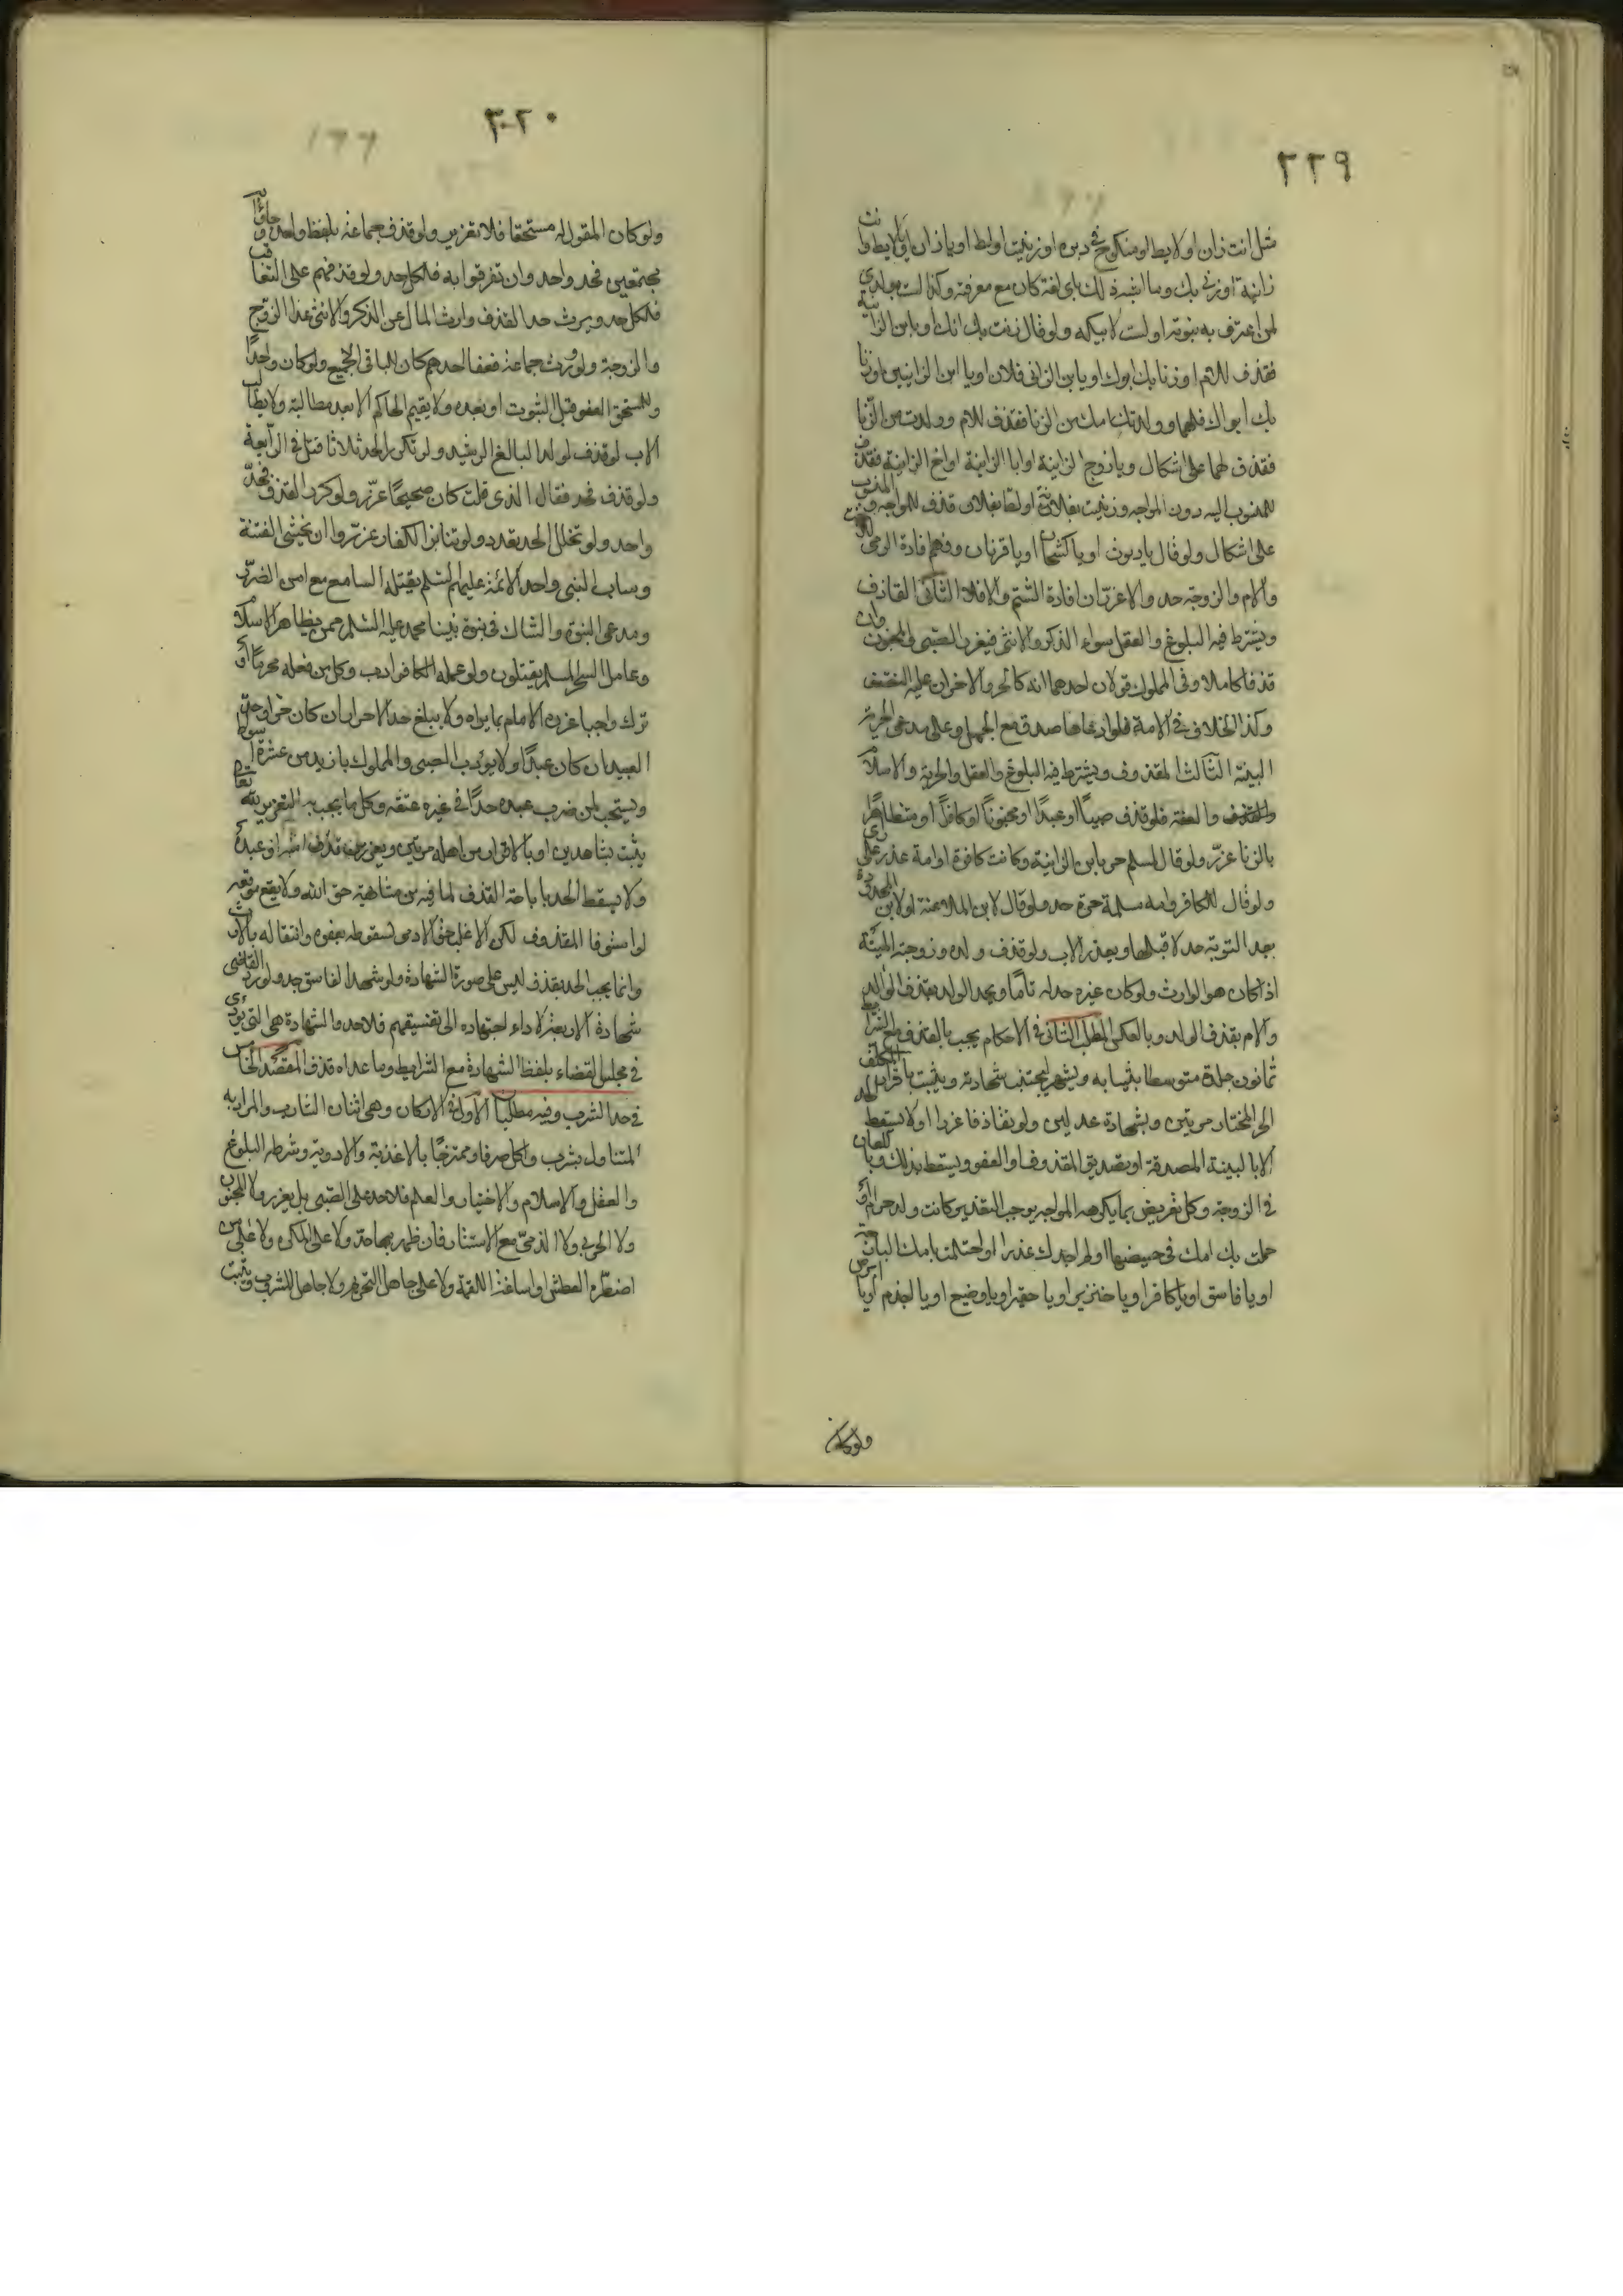 ٢٢٩
مثل انت زان او لايط او منكوح في دبره او زنيت او لطت او يا زان او يا لايط وانت
زانية او زنى بك وما اشبه ذلك باى لغة كان مع معرفته وكذا لست بولدى
لمن اعترف به بنوته او لست لابيك ولو قال زنت بك امك او يا بن الزانية
فقذف للام او زنا بك ابوك او يا بن الزانى فلان او يا ابن الزانيين او زنا
بك ابواك فلهما وولدتك امك من الزنا فقذف للام وولدت من الزنا
فقذف لهما على اشكال ويا زوج الزانية او يا ابا الزانية او اخ الزانية فقذف
للمنسوب اليه دون المواجه وزنيت بفلانة او لطت بفلان قذف للمواجه والمنسوب
على اشكال ولو قال يا ديوث او يا كشحان او يا قرنان وفهم افادة الرمى
والام والزوجة حد والا عزر ان افادة الشتم والا فلا الثانى القاذف
ويشترط فيه البلوغ والعقل سواء الذكر والانثى فيعزر الصبى والمجنون وان
قذفا كاملا وفى المملوك قولان احدهما انه كالحر والاخر ان عليه النصف
وكذا الخلاف فى الامة فلو ادعاها صدق مع الجهل وعلى مدعى الحرية
البينة الثالث المقذوف ويشترط فيه البلوغ والعقل والحرية والاسلام
والعفة فلو قذف صبيا او عبدا او مجنونا او كافرا او متظاهرا
بالزنا عزر ولو قال لمسلم حر يا بن الزانية وكانت كافرة او امة عزر على رأى
ولو قال للكافر وامه مسلمة حرة حد ولو قال لابن الملاعنة او لابن المحدودة
بعد التوبة حد لا قبلها ويعزر الاب لو قذف ولده وزوجته الميتة
اذا كان هو الوارث ولو كان غيره حد له تاما ويحد الولد بقذف الوالد
والام بقذف الولد وبالعكس المطلب الثانى فى الاحكام يجب بالقذف مع الشرايط
ثمانون جلدة متوسطا بثيابه ويشهر ليجتنب شهادته ويثبت باقرار المكلف
الحر المختار مرتين وبشهادة عدلين ولو تقاذفا عزرا ولا يسقط الحد
الا بالبينة المصدقة او بتصديق المقذوف او العفو ويسقط بذلك وباللعان
فى الزوجة وكل تعريض بما يكرهه المواجه يوجب التعزير كانت ولد حرام او
حملت بك امك فى حيضها او لم اجدك عذرا او احتلمت بامك البارحة
او يا فاسق او يا كافر او يا خنزير او يا حقير او يا وضيع او يا اجذم او يا ابرص
ولو كان
٢٢٠
ولو كان المقول له مستحقا فلا تعزير ولو قذف جماعة بلفظ واحد وجاؤا به
مجتمعين فحد واحد وان تفرقوا به فلكل حد ولو قذفهم على التعاقب
فلكل حد ويرث حد القذف وارث المال من الذكر والانثى عدا الزوج
والزوجة ولو ورث جماعة فعفا احدهم كان للباقى الجميع ولو كان واحدا
وللمستحق العفو قبل الثبوت او بعده ولا يقيم الحاكم الا بعد مطالبة ولا يطالب
الاب لو قذف لولد البالغ الرشيد ولو تكرر الحد ثلاثا قتل فى الرابعة
ولو قذف فحد فقال الذى قلت كان صحيحا عزر ولو كرر القذف فحد
واحد ولو تخلل الحد تعدد ولو تنابز الكفار عزروا ان يخشى الفتنة
وساب النبى واحد الائمة عليهم السلم يقتله السامع مع امن الضرر
ومدعى النبوة والشاك فى نبوة نبينا محمد عليه السلم ممن يظاهر الاسلام
وعامل السحر المسلم يقتلون ولو عمله الكافر ادب وكل من فعل محرما او
ترك واجبا عزره الامام بما يراه ولا يبلغ حد الاحرار ان كان حرا وحد
العبيد ان كان عبدا ولا يؤدب الصبى والمملوك بازيد من عشرة اسواط
ويستحب لمن ضرب عبده حدا فى غيره عتقه وكل ما يجب به التعزير لله تعالى
يثبت بشاهدين او بالاقرار من اهله مرتين ويعزر من قذف امته او عبده
ولا يسقط الحد باباحة القذف لما فيه من مشابهة حق الله ولا يقع موقعه
لو استوفا المقذوف لكن الاغلب حق الادمى لسقوطه بعفوه وانتقاله بالارث
وانما يجب الحد بقذف ليس على صورة الشهادة ولو شهد الفاسق حد ولو رد القاضى
شهادة الاربعة لاداء اجتهاده الى تفسيقهم فلا حد والشهادة هى التى يؤدى
فى مجلس القضاء بلفظ الشهادة مع الشرايط وما عداه قذف المقصد الخامس
فى حد الشرب وفيه مطلبان الاول فى الاركان وهى اثنان الشارب والمراد به
المتناول بشرب واكل صرفا وممتزجا بالاغذية والادوية وشرطه البلوغ
والعقل والاسلام والاختيار والعلم فلا حد على الصبى بل يعزر ولا المجنون
ولا الحربى ولا الذمى مع الاستتار فان ظهر بها حد ولا على المكره ولا على من
اضطره العطش او اساغة اللقمة ولا على جاهل التحريم ولا جاهل المشروب ويثبت